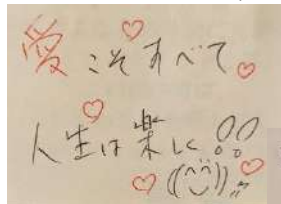 愛こそすべて。
人生は楽しく!!